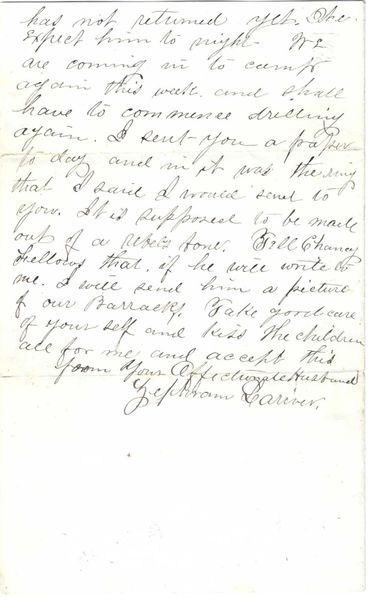 has not returned yet. We
Expect him to night. We
are coming in to camp
again this week. and shall
have to commence drilling
again. I sent you a paper
to day and in it was the ring
that I said I would send to
you. It is supposed to be made
out of a rebels bone. Tell Chancy
Fellows that if he will write to
me. I will send him a picture
of our Barracks. Take good care
of your self and Kiss the children
all for me and accept this
from Your Affectionate Husband
Zephram Lariver.